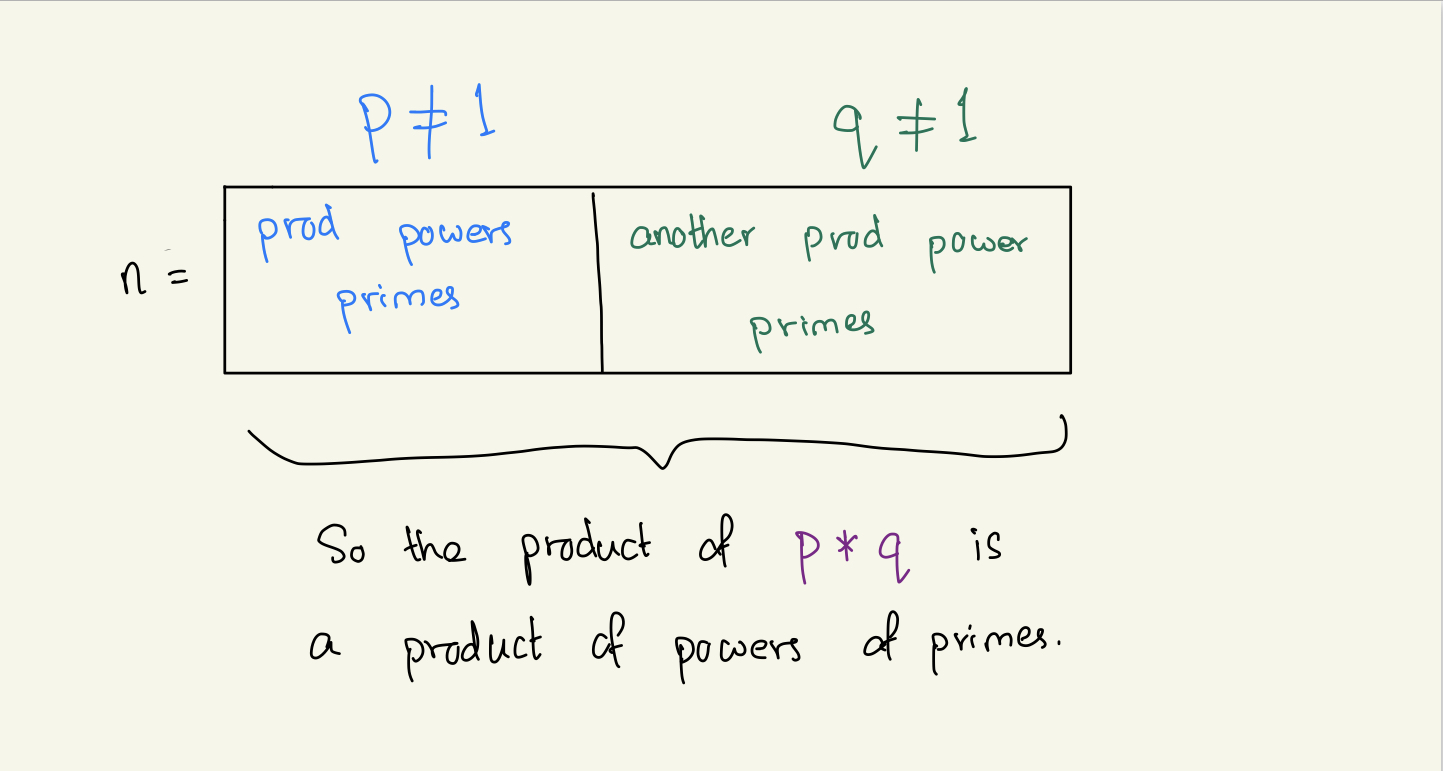 p ≠ 1
q ≠ 1
n =
prod powers
primes
another prod power
primes
So the product of p * q is
a product of powers of primes.